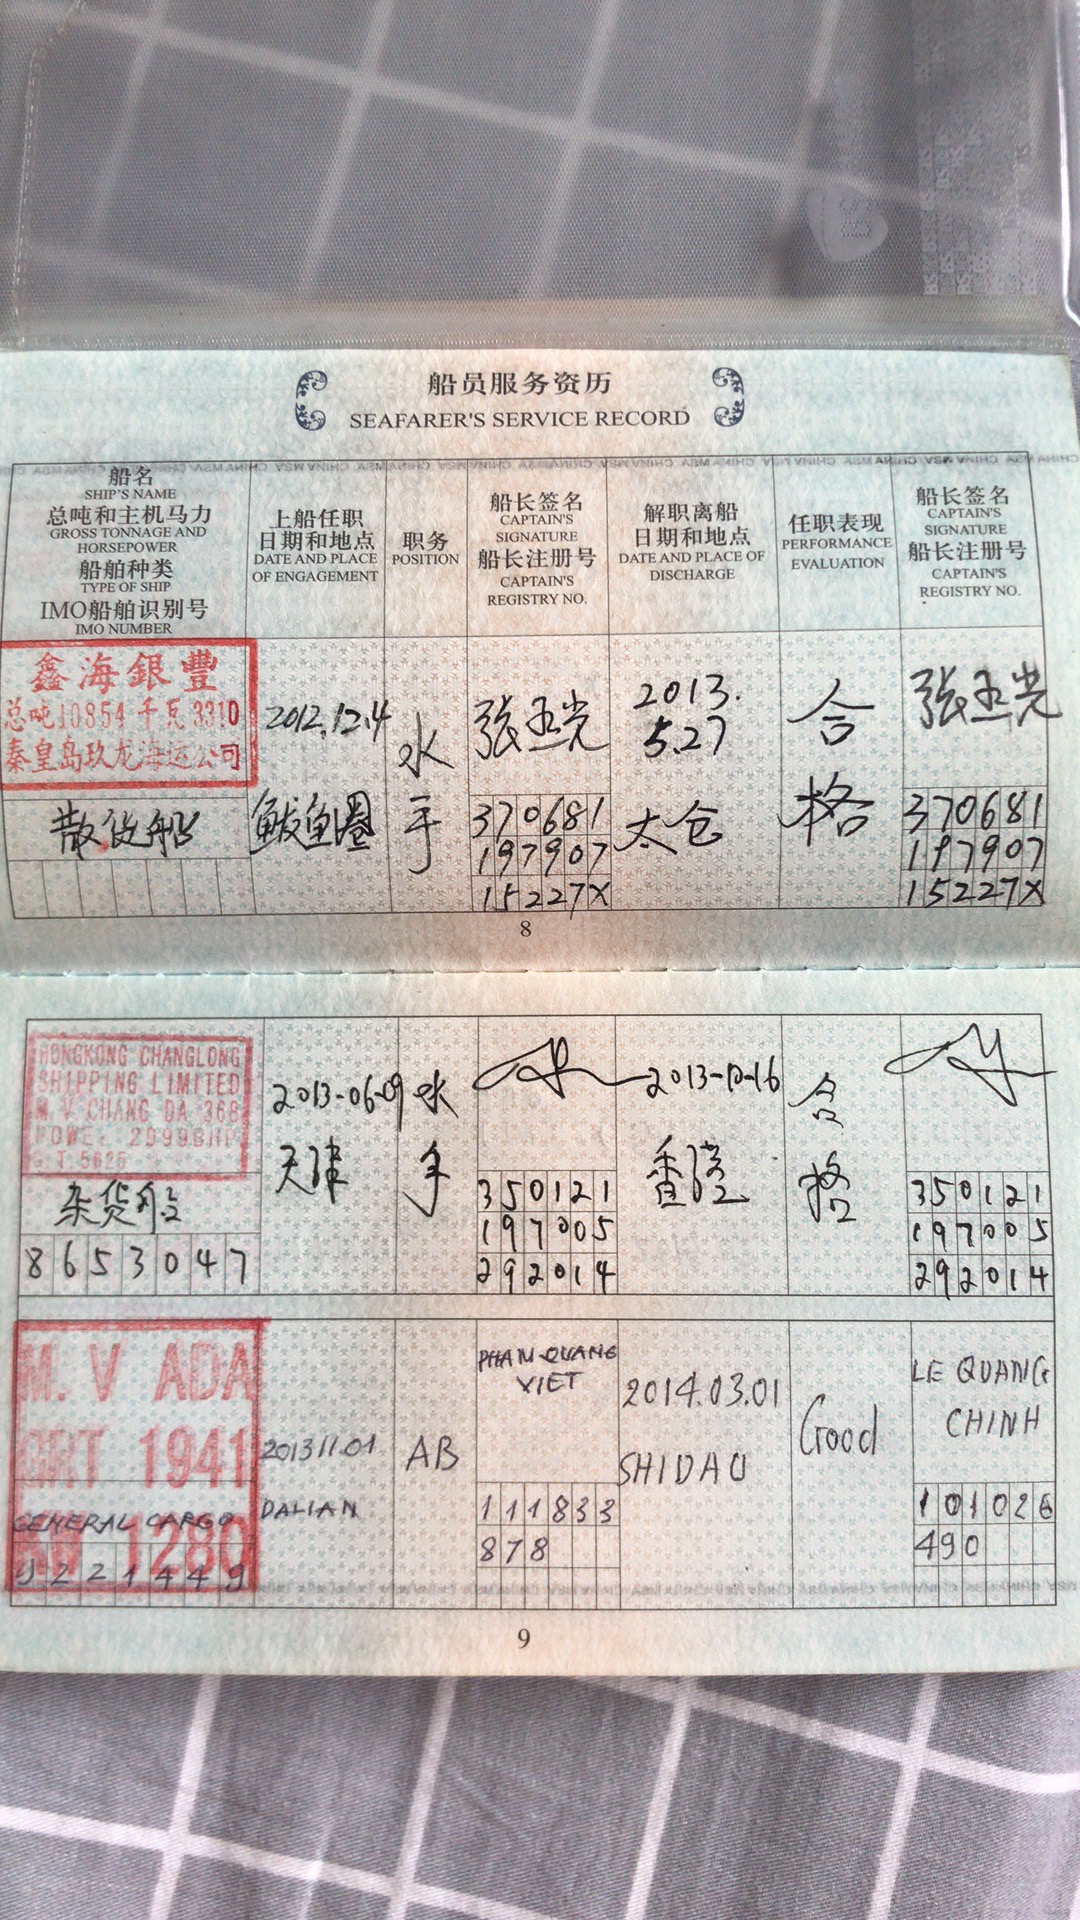 船员服务资历
SEAFARER'S SERVICE RECORD
船名
SHIP'S NAME
总吨和主机马力
GROSS TONNAGE AND
HORSEPOWER
船舶种类
TYPE OF SHIP
IMO船舶识别号
IMO NUMBER
上船任职
日期和地点
DATE AND PLACE
OF ENGAGEMENT
职务
POSITION
船长签名
CAPTAIN'S
SIGNATURE
船长注册号
CAPTAIN'S
REGISTRY NO.
解职离船
日期和地点
DATE AND PLACE OF
DISCHARGE
任职表现
PERFORMANCE
EVALUATION
船长签名
CAPTAIN'S
SIGNATURE
船长注册号
CAPTAIN'S
REGISTRY NO.
鑫海銀豐
总吨10854 千瓦3310
秦皇岛玖龙海运公司
散货船
2012.12.4
鲅鱼圈
水
手
370681
197907
15227X
2013.
5.27
太仓
合
格
370681
197907
15227X
8
HONGKONG CHANGLONG
SHIPPING LIMITED
M.V.CHANG DA 368
杂货船
8653047
2013-06-09
天津
水
手
350121
197005
292014
2013-10-16
香港
合
格
350121
197005
292014
M.V ADA
GRT 1941
KW 1280
GENERAL CARGO
9221449
2013 11.01
DALIAN
AB
PHAM QUANG
VIET
111833
878
2014.03.01
SHIDAO
Good
LE QUANG
CHINH
101026
490
9